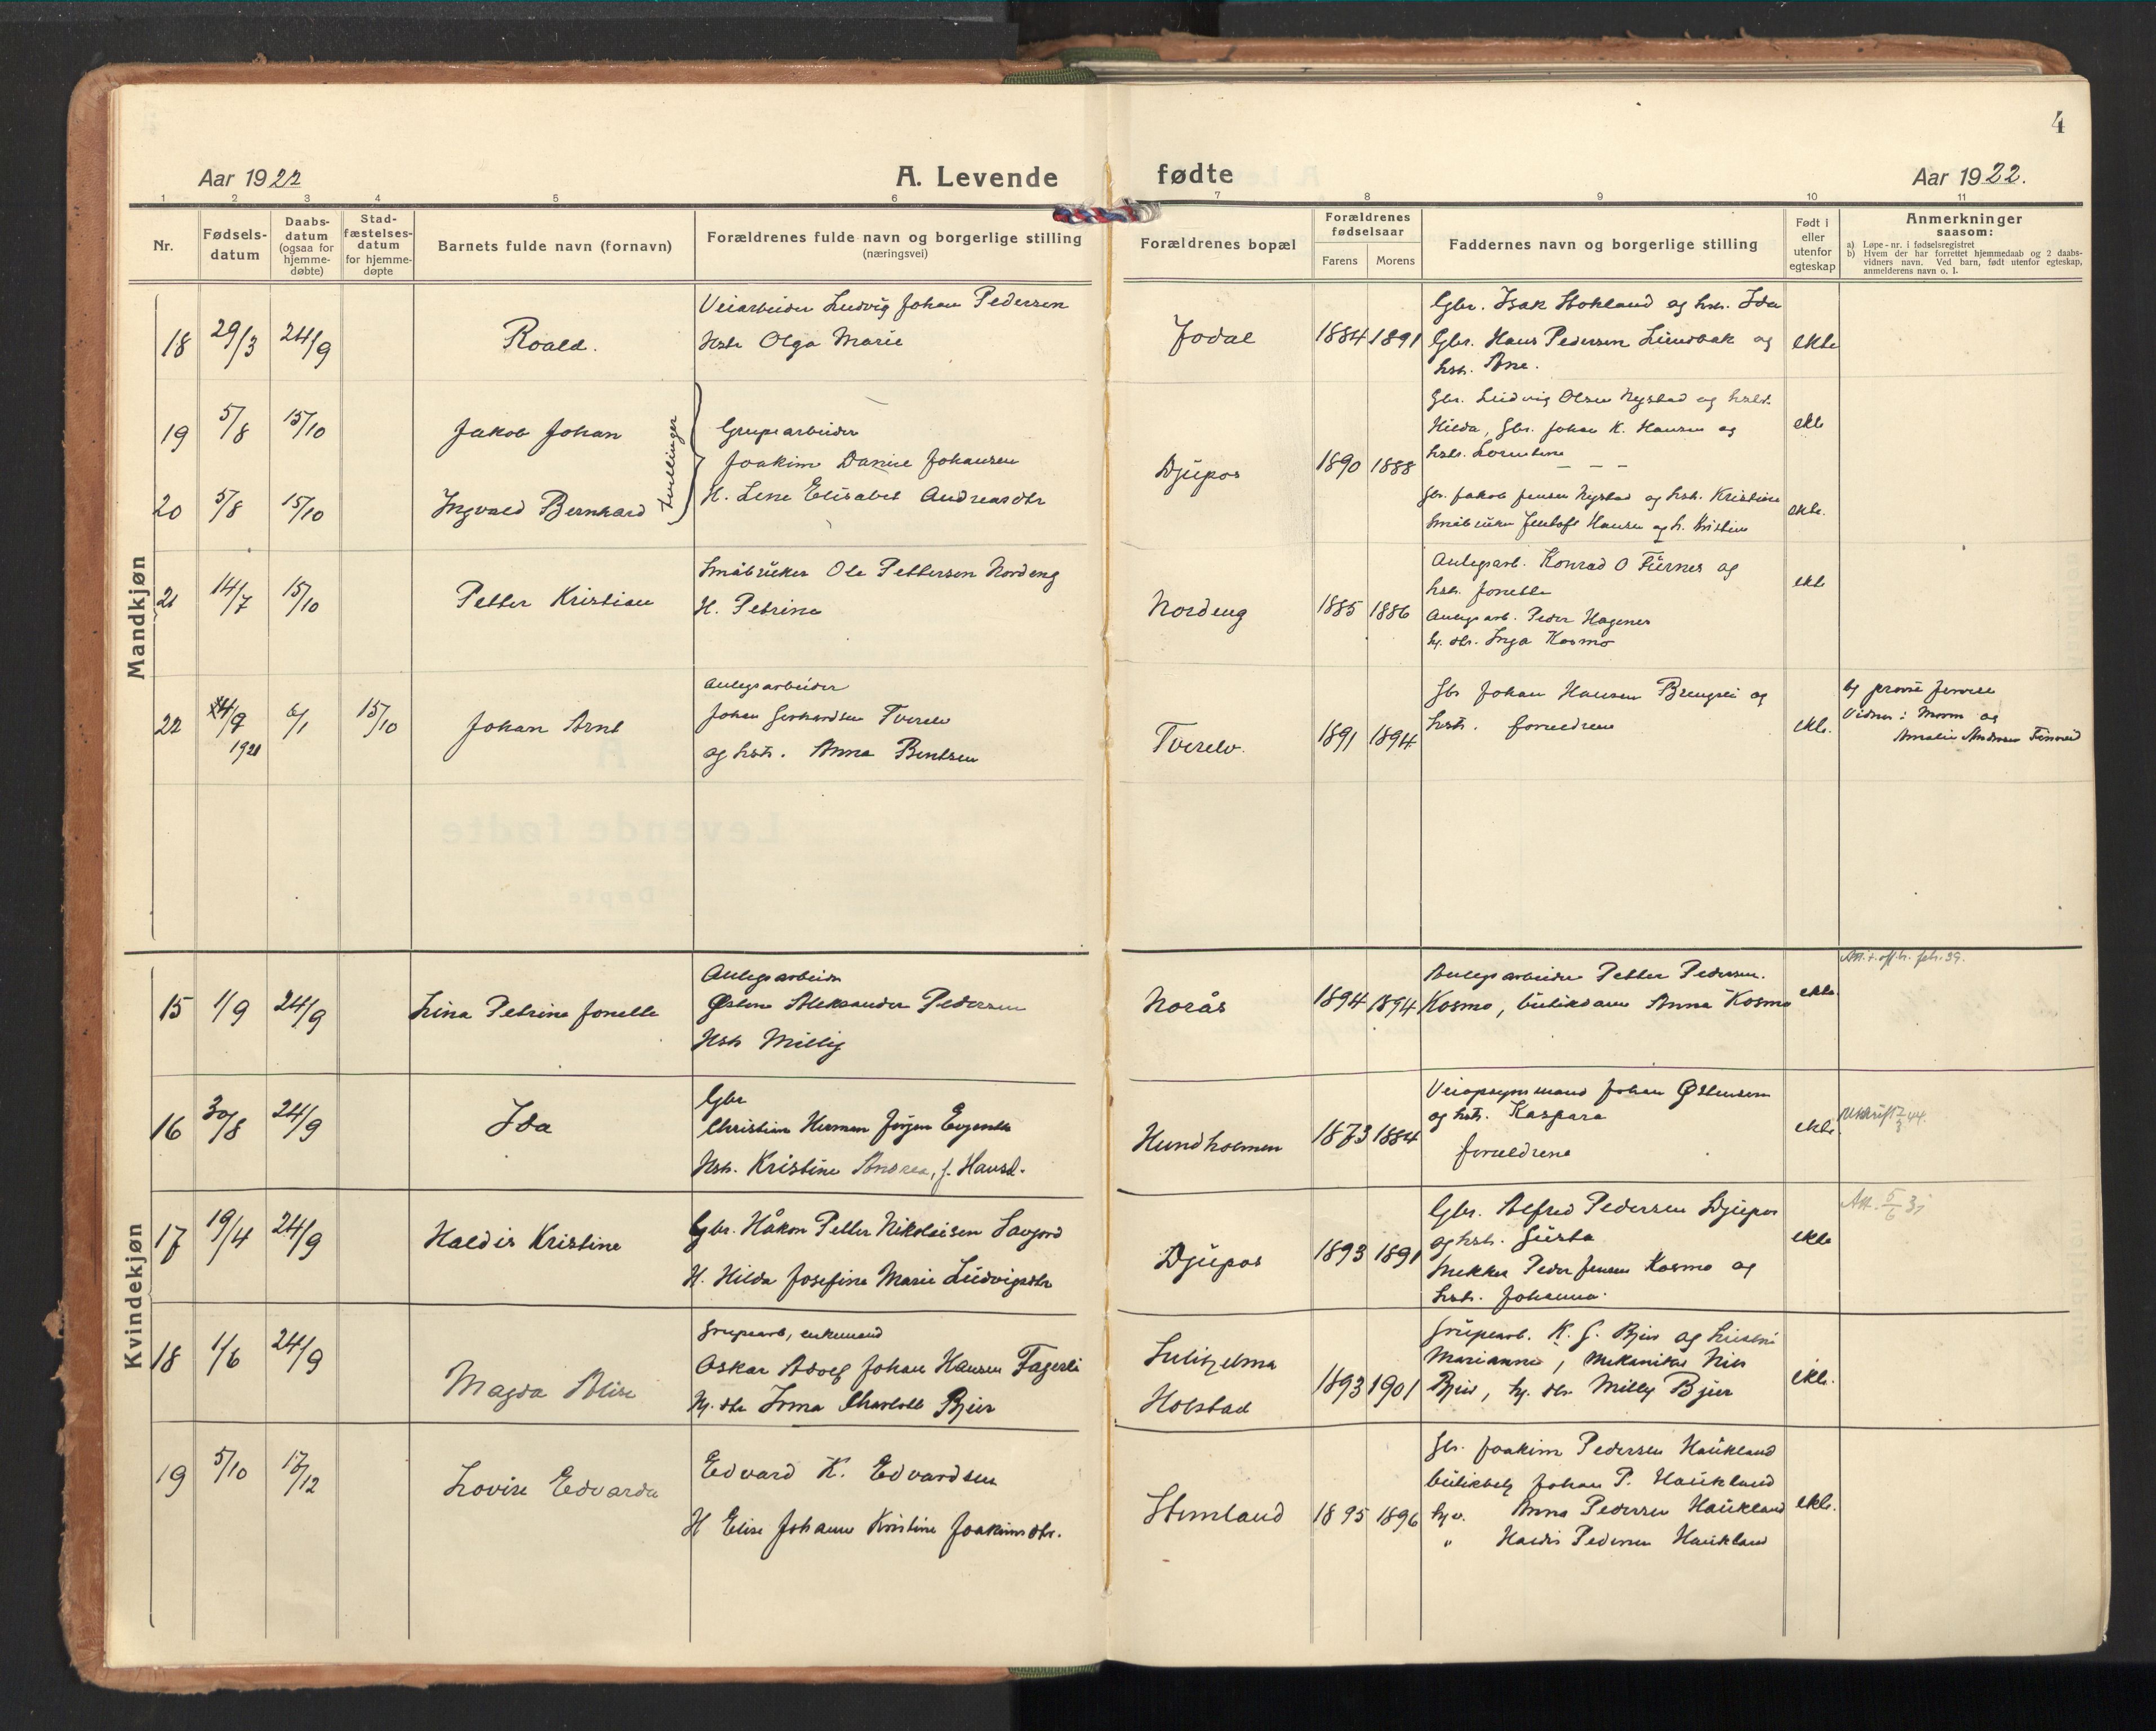 4
Aar 1922
A. Levende
fødte
Aar 1922.
1 2 3 4 5 6 7 8 9 10 11
Nr.
Fødsels-
datum
Daabs-
datum
(ogsaa for
hjemme-
døbte)
Stad-
fæstelses-
datum
for hjemme-
døpte
Barnets fulde navn (fornavn)
Forældrenes fulde navn og borgerlige stilling
(næringsvei)
Forældrenes bopæl
Forældrenes
fødselsaar
Farens Morens
Faddernes navn og borgerlige stilling
Født i
eller
utenfor
egteskap
Anmerkninger
saasom:
a) Løpe-nr. i fødselsregistret
b) Hvem der har forrettet hjemmedaab og 2 daabs-
vidners navn. Ved barn, født utenfor egteskap,
anmelderens navn o. l.
Mandkjøn
18 29/3 24/9 Roald.
Veiarbeider Ludvig Johan Pedersen
Hstr Olga Marie
Jodal 1884 1891
Gbr. Isak Stokland og hstr. Ida
Gbr. Hans Pedersen Lundbak og
hstr. Ane.
ekte
19 5/8 15/10 Jakob Johan
20 5/8 15/10 Ingvald Bernhard
Tvillinger
Grupearbeider
Joakim Daniel Johansen
H. Lene Elisabet Andreasdtr
Djupos 1890 1888
Gbr. Ludvig Olsen Nystad og hstr.
Hilda, Gbr. Johan K. Hansen og
hstr. Lorentine
ekte
Gbr. Jakob Jensen Nystad og hstr. Kristine
Småbruker Jentoft Hansen og h. Kristine
ekte.
21 14/7 15/10 Petter Kristian
Småbruker Ole Pettersen Nordeng
H. Petrine
Nordeng 1885 1886
Anlegsarb. Konrad O Furnes og
hstr. Jonette
Anlegsarb. Peder Hagenes
hj. dtr. Inga Kosmo
ekte
22 4/9 1921 6/1 15/10 Johan Arnt
Anlegsarbeider
Johan Gerhardsen Tverelv
og hstr. Anna Bentsen
Tverelv. 1891 1894
Gbr Johan Hansen og
hstr. foreldrene
ekte.
Vidner: Morm og
Amalie
Kvindekjøn
15 1/9 24/9 Lina Petrine Jonette
Anlegsarbeider
Østen Aleksander Pedersen
Hstr Milly
Norås 1894 1894
Anlegsarbeider Petter Pedersen.
Kosmo, butikdame Anna Kosmo
ekte
16 30/8 24/9 Ida
Gbr
Christian Herman Jørgen
Hstr. Kristine Andrea, f. Hansd.
Hundholmen 1873 1884
Veiopsynsmand Johan Østensen
og hstr. Kaspara
foreldrene
ekte.
Utskrift 7/3 44.
17 19/4 24/9 Haldis Kristine
Gbr. Håkon Petter Nikolaisen Savjord
H. Hilda Josefine Marie Ludvigsdtr
Djupos 1893 1891
Gbr. Alfred Pedersen Djupos
og hstr. Gusta
Snekker Peder Jensen Kosmo og
hstr. Johanna.
ekte
Att. 5/6 31
18 1/6 24/9 Magda Alise
Grupearb, enkemand
Oskar Adolf Johan Hansen Fagerli
Hj. dtr Irma Charlotte Bjur
Sulitjelma
Holstad
1893 1901
Grupearb. K. G. Bjur og hustru
Marianne, mekaniker Nils
Bjur, hj. dtr. Milly Bjur
ekte.
19 5/10 17/12 Lovise Edvarda
Edvard K. Edvardsen
H Elise Johanne Kristine Joakimsdtr.
Stemland 1895 1896
Gbr. Joakim Pedersen Haukland
butikbetj Johan P. Haukland
hj v. Anna Pedersen Haukland
" Haldis Pedersen Haukland
ekte.